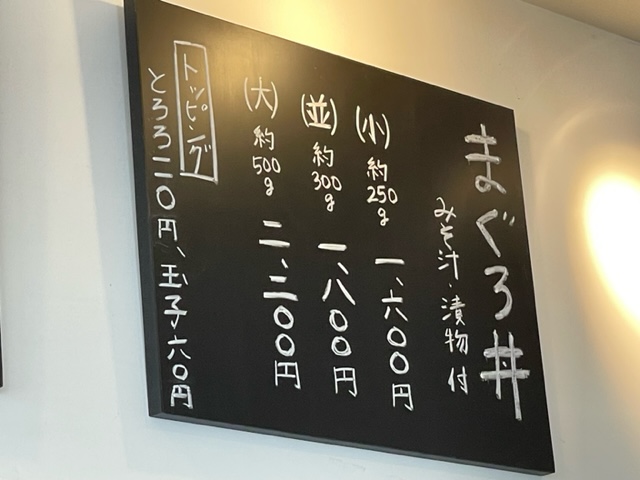 まぐろ丼
みそ汁・漬物付
(小) 約250g 一、六〇〇円
(並) 約300g 一、八〇〇円
(大) 約500g 二、三〇〇円
トッピング
とろろ二〇円、玉子六〇円